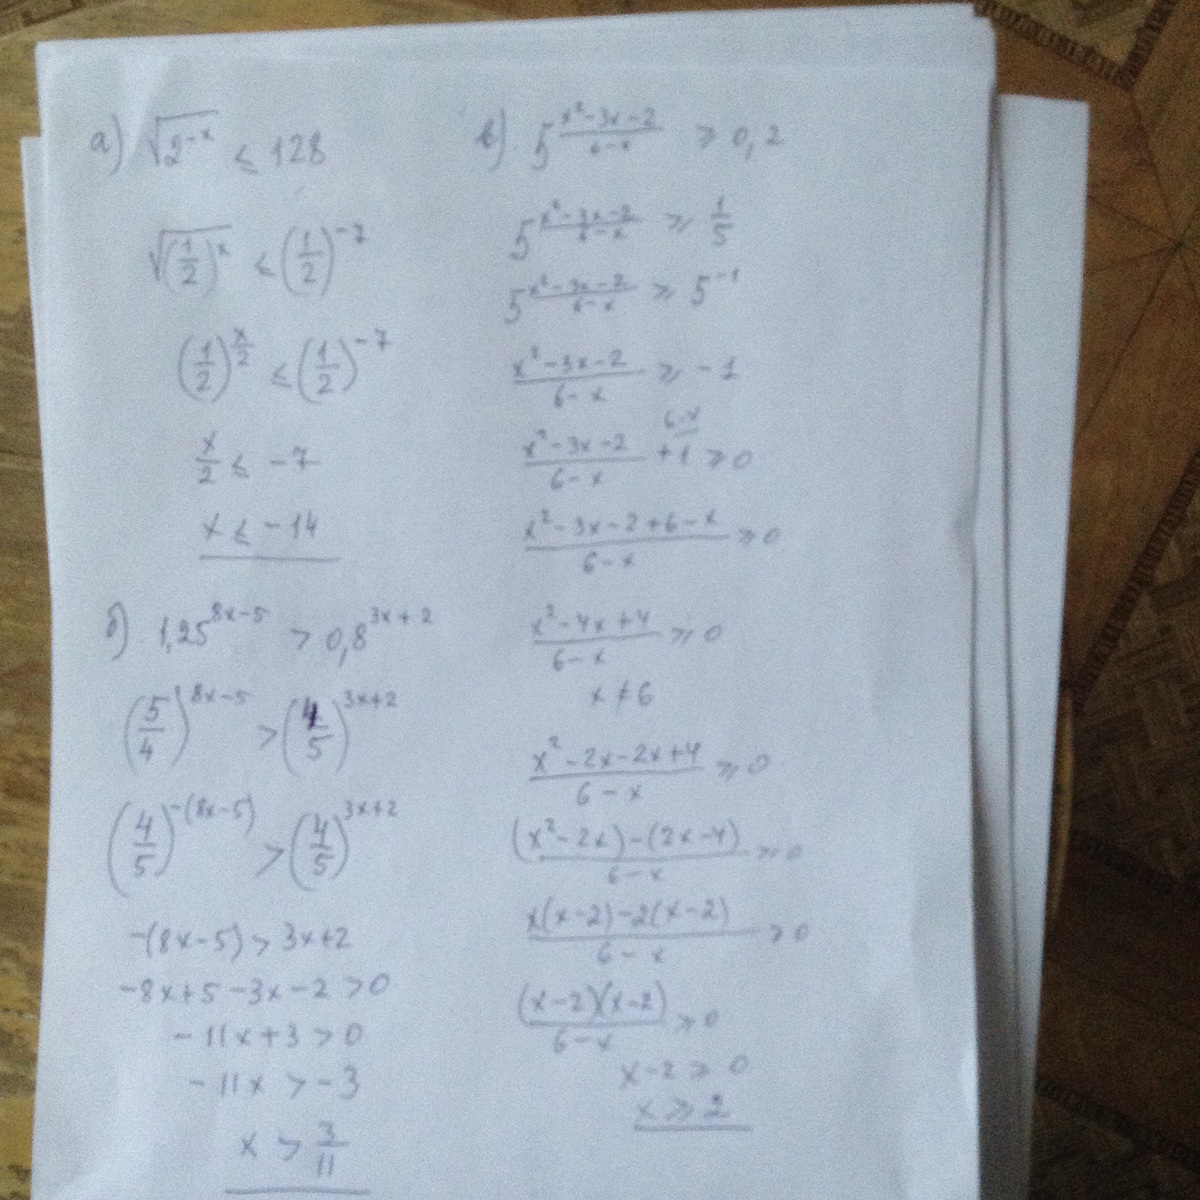 а) √(2^(-x)) ≤ 128
√((1/2)^x) ≤ (1/2)^(-7)
(1/2)^(x/2) ≤ (1/2)^(-7)
x/2 ≤ -7
x ≤ -14
б) 1,25^(8x-5) > 0,8^(3x+2)
(5/4)^(8x-5) > (4/5)^(3x+2)
(4/5)^(-(8x-5)) > (4/5)^(3x+2)
-(8x-5) > 3x+2
-8x+5-3x-2 > 0
-11x+3 > 0
-11x > -3
x > 3/11
в) 5^((x²-3x-2)/(6-x)) ≥ 0,2
5^((x²-3x-2)/(6-x)) ≥ 1/5
5^((x²-3x-2)/(6-x)) ≥ 5^(-1)
(x²-3x-2)/(6-x) ≥ -1
(x²-3x-2)/(6-x) + 1 ≥ 0
6-x
(x²-3x-2+6-x)/(6-x) ≥ 0
(x²-4x+4)/(6-x) ≥ 0
x ≠ 6
(x²-2x-2x+4)/(6-x) ≥ 0
((x²-2x)-(2x-4))/(6-x) ≥ 0
(x(x-2)-2(x-2))/(6-x) ≥ 0
((x-2)(x-2))/(6-x) ≥ 0
x-2 ≥ 0
x ≥ 2